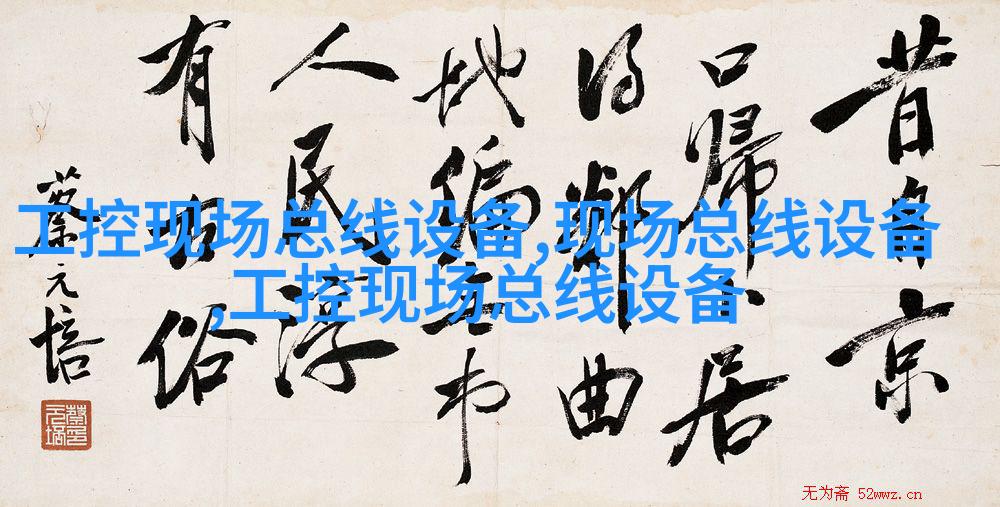 工控现场总线设备,现场总线设备
,工控现场总线设备
昔自京
口歸卜居
得鄰曲
地偏無市
人民淳
有古俗
蔡元培
无为斋 52wwz.cn